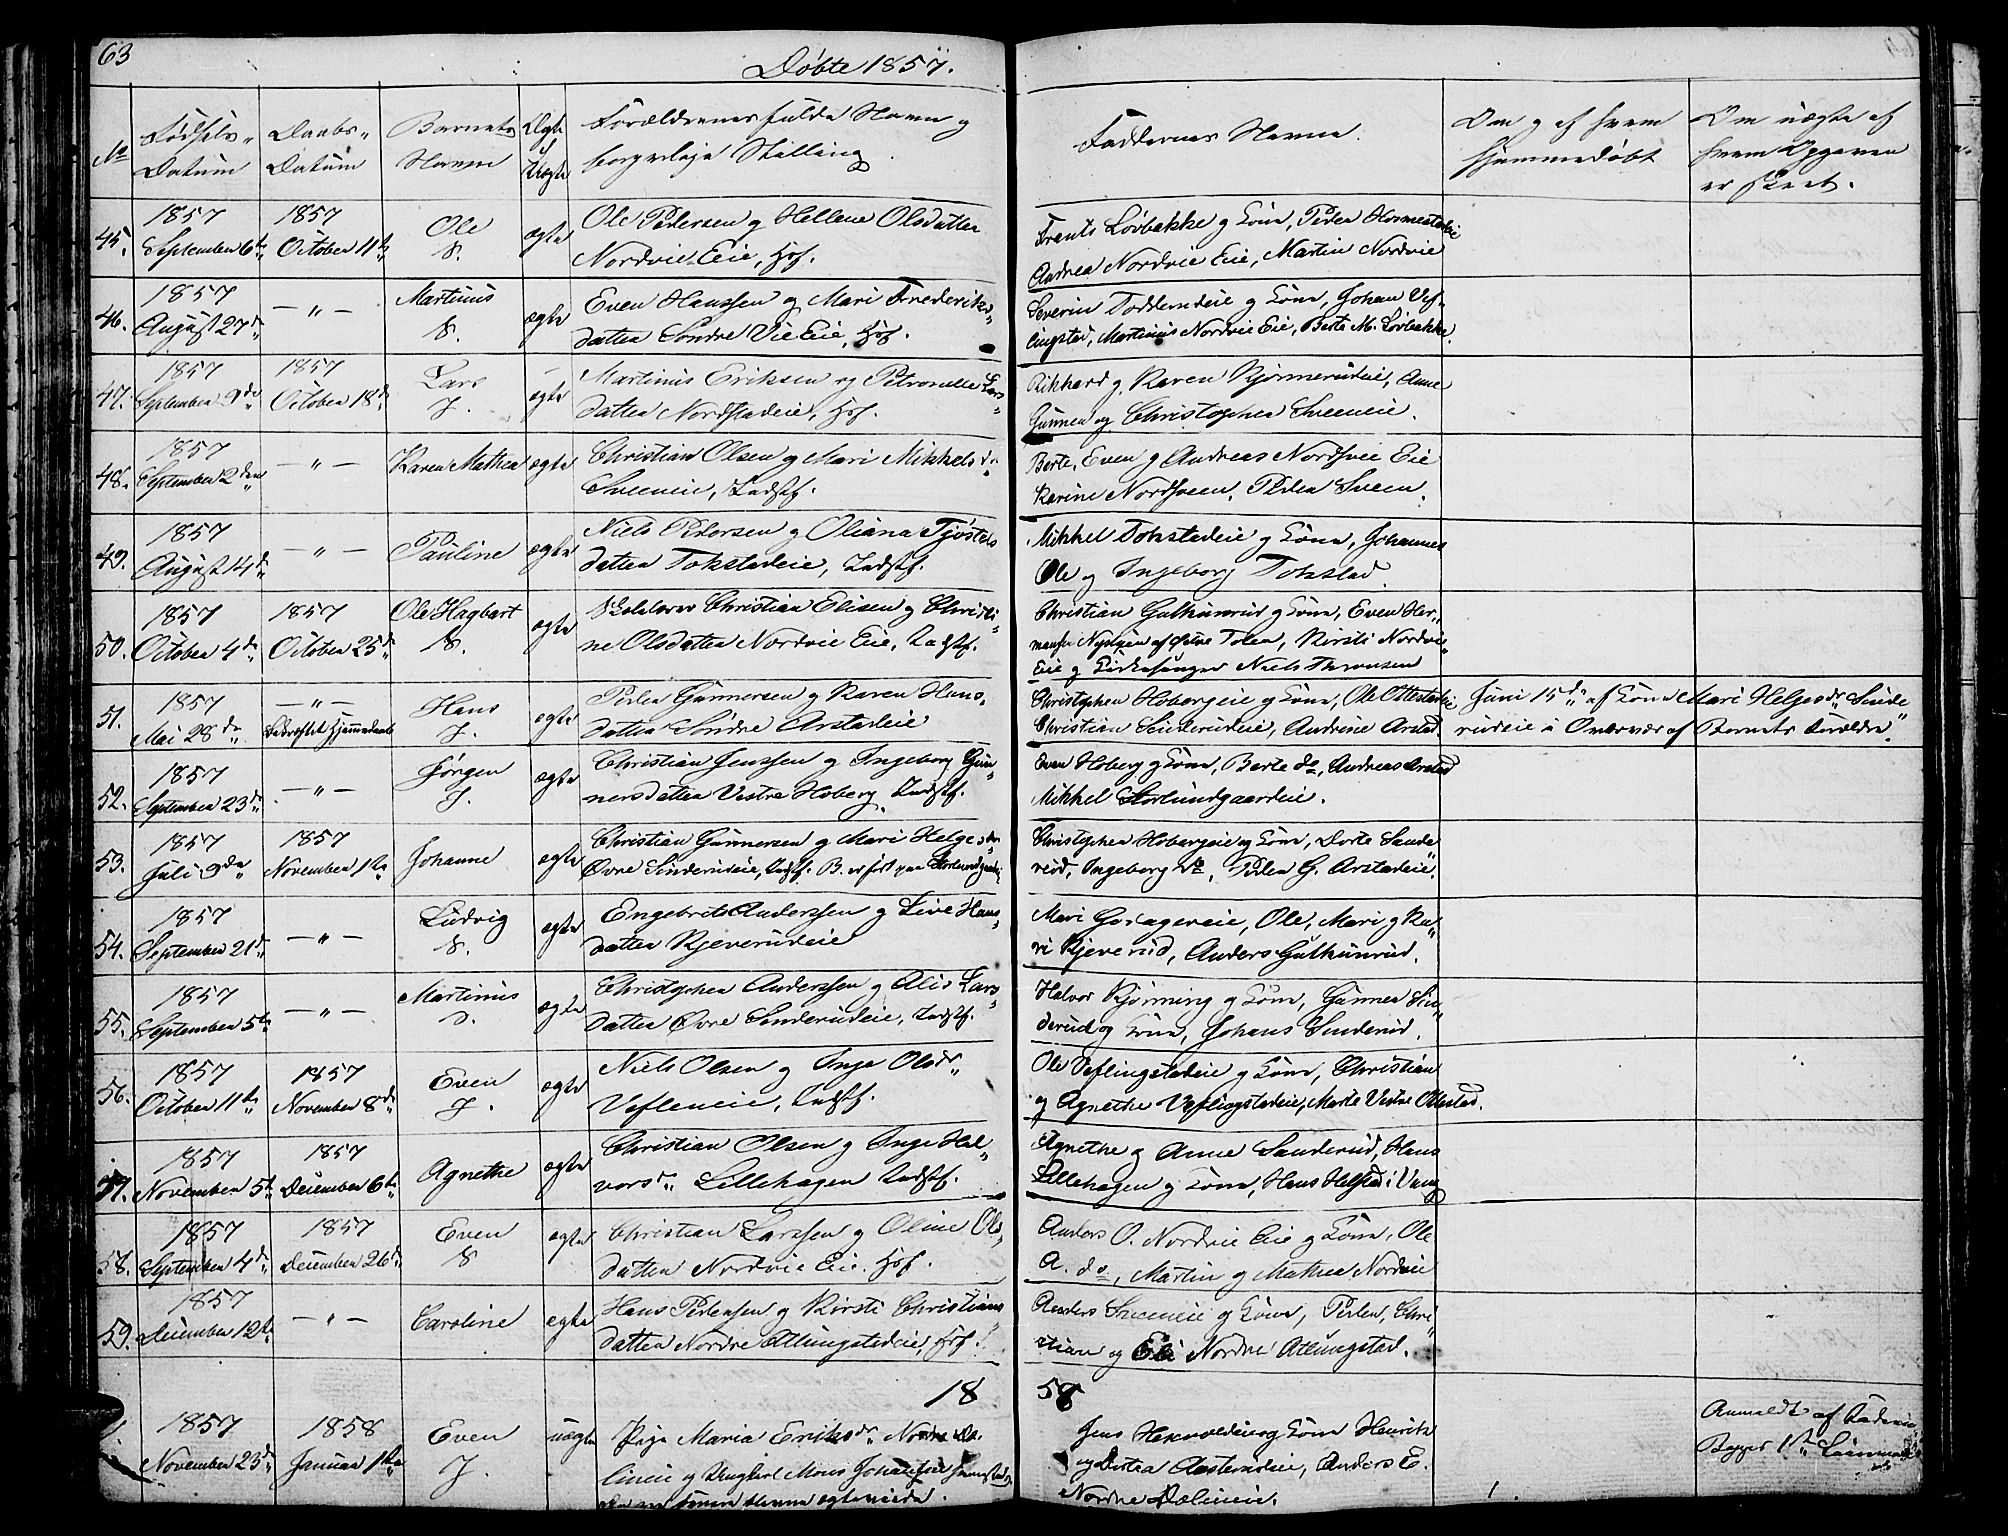 63
Døbte 1857.
No
Fødsels-
Datum
Daabs-
Datum
Barnets
Navn
Ægte
el
Uægte
Forældrenes fulde Navn og
borgerlige Stilling.
Faddernes Navne.
Om og af hvem
hjemmedøbt
Om uægte af
hvem Opgaven
er skeet.
45.
1857
September 6te
1857
October 11te
Ole
S.
ægte
Ole Pedersen og Hellene Olsdatter
Nordvie Eie, Hof.
Frants Løvbakke og Kone, Peder
Andrea Nordvie Eie, Martin Nordvie
46.
1857
August 27de
— „ —
Martinus
S.
ægte
Even Hanssen og Mari Frederiks-
datter Søndre Vie Eie, Hof.
Severin og Kone, Johan Vef-
lingstad, Martinus Nordvie Eie, Berte M. Løvbakke.
47.
1857
September 9de
1857
October 18de
Lars
J.
ægte
Martinus Eriksen og Petronelle Lars-
datter Nordstadeie, Hof.
Rikhard og Karen Kjønnerudeie, Anne
Gunner og Christopher Sveeneie.
48.
1857
September 2den
— „ —
Karen Mathea
ægte
Christian Olsen og Mari Mikkelsdr
Sveeneie, Indst.
Berte, Even og Andreas Nordsvee Eie
Karine Nordsveen, Peder Sveen.
49.
1857
August 14de
— „ —
Pauline
ægte
Niels Pedersen og Oliana Tjøstels
datter Tokstadeie, Indst.
Mikkel Tokstadeie og Kone, Johannes
Ole og Ingeborg Tokstad.
50.
1857
October 4de
1857
October 25de
Ole Hagbart
S.
ægte
Skolelærer Christian Elisen og Christi-
ne Olsdatter Nordvie Eie, Indst.
Christian Gulkunrud og Kone, Even Her-
mansen af Østre Toten, Kirsti Nordvie
Eie og Kirkesanger Niels Thronsen
51.
1857
Mai 28de
— „ —
Bekræftet Hjemmedaab
Hans
J.
ægte
Peder Gunnersen og Karen Hans-
datter Søndre Arstadeie
Christopher Hobergeie og Kone, Ole Ottestadeie
Christian Sinderudeie, Andrine Arstad.
Juni 15de af Kone Mari Helgesdr Sinde-
rudeie i Overvær af Barnets Forældre.
52.
1857
September 23de
— „ —
Jørgen
J.
ægte
Christian Jenssen og Ingeborg Gun-
nersdatter Vestre Hoberg, Indst.
Even Hoberg og Kone, Berte do, Andreas Arstad
Mikkel Storlundgaardeie.
53.
1857
Juli 9de
1857
November 1ste
Johanne
ægte
Christian Gunnersen og Mari Helgesdr
Øvre Sinderudeie, Indst. B. er født paa
Christopher Hobergeie og Kone, Dorte Sande-
rud, Ingeborg do, Peder G. Arstadeie.
54.
1857
September 21de
— „ —
Ludvig
S.
ægte
Engebret Anderssen og Live Hans-
datter Kjeverudeie
Mari, Ole, Mari og Ka-
ri Kjeverud, Anders Gulkunrud.
55.
1857
September 5te
— „ —
Martinus
S.
ægte
Christopher Anderssen og Alis Lars-
datter Øvre Sinderudeie, Indst.
Halvor Kjønning og Kone, Gunner Sin-
derud og Kone, Johans Sinderud.
56.
1857
October 11te
1857
November 8de
Even
J.
ægte
Niels Olsen og Inge Olsdr
Vefleneie, Indst.
Ole Veflingstadeie og Kone, Christian
og Agnethe Veflingstadeie, Marte Vestre Ottestad.
57.
1857
November 5te
1857
December 6te
Agnethe
ægte
Christian Olsen og Inge Hal-
vorsdr Lillehagen Indst.
Agnethe og Anne Sanderud, Hans
Lillehagen og Kone, Hans Helstad i Vang
58.
1857
September 4de
1857
December 26de
Even
S
ægte
Christian Larssen og Oline Ols-
datter Nordvie Eie. Hof.
Anders O. Nordvie Eie og Kone, Ole
A. do, Martin og Mathea Nordvie
59.
1857
December 12te
— „ —
Caroline
ægte
Hans Pedersen og Kirsti Christians
datter Nordre Atlungstadeie, Hof.
Anders Sveeneie og Kone, Peder, Chri-
stian og Eli Nordre Atlungstad.
18
58
1857
November 23de
1858
Januar 1ste
Even
J.
uægte
Pige Maria Eriksdr Nordre Da-
lineie og Ungkarl Mons Johannessen
Jens og Kone Henrik
og Anders E.
Nordre Dalineie.
Anmeldt af